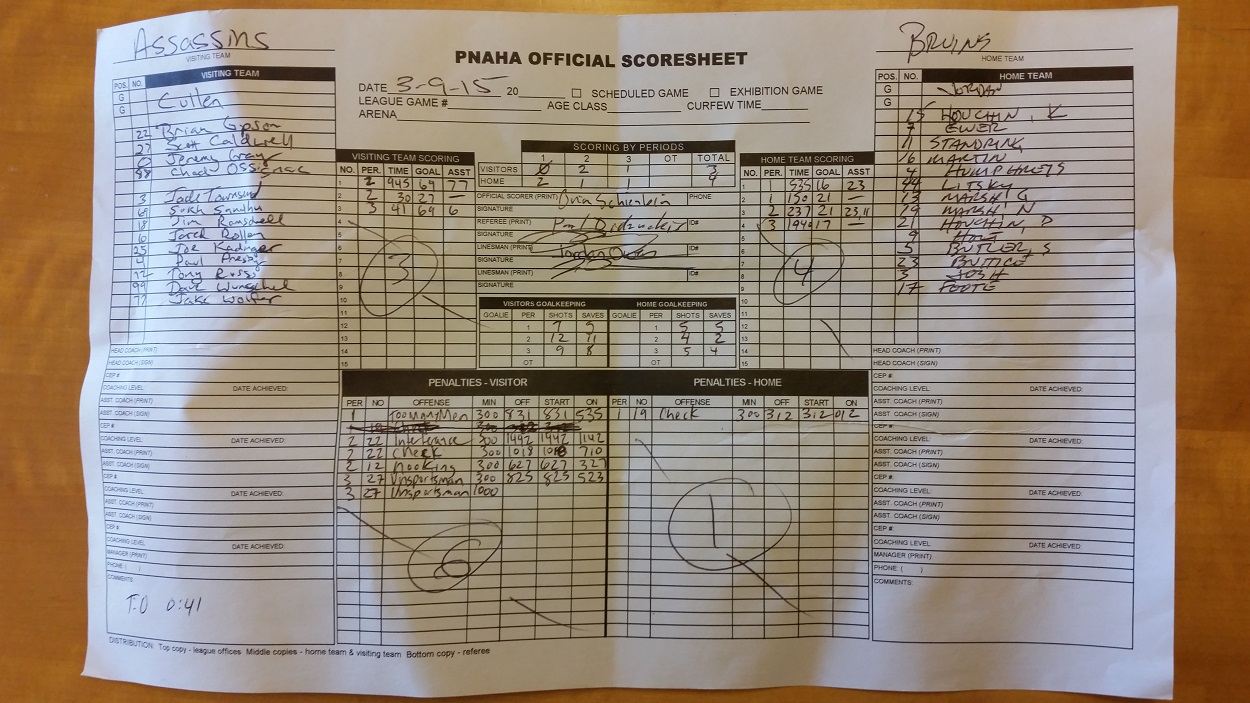 Assassins
VISITING TEAM
BRUINS
HOME TEAM
PNAHA OFFICIAL SCORESHEET
DATE 3-9-15 20 SCHEDULED GAME EXHIBITION GAME
LEAGUE GAME # AGE CLASS CURFEW TIME
ARENA
POS. NO. VISITING TEAM
G Cullen
G
22 Brian Gipson
27 Scott Caldwell
Jeremy Gray
88 Chad Ossignac
3 Jade Townsend
69 Sukh Sandhu
18 Jim Ramsdell
6 Jared Rollen
25 Joe Kadinger
Paul
12 Tony Russo
99 Dave
77 Jake Wolfer
HEAD COACH (PRINT)
HEAD COACH (SIGN)
CEP #
COACHING LEVEL: DATE ACHIEVED:
ASST. COACH (PRINT)
ASST. COACH (SIGN)
CEP #
COACHING LEVEL: DATE ACHIEVED:
ASST. COACH (PRINT)
ASST. COACH (SIGN)
CEP #
COACHING LEVEL: DATE ACHIEVED:
ASST. COACH (PRINT)
ASST. COACH (SIGN)
CEP #
COACHING LEVEL: DATE ACHIEVED:
MANAGER (PRINT)
PHONE: ( )
COMMENTS:
T.O 0:41
VISITING TEAM SCORING
NO. PER. TIME GOAL ASST
1 2 945 69 77
2 2 30 27 —
3 3 41 69 6
4
5
6
7
8
9
10
11
12
13
14
15
3
SCORING BY PERIODS
1 2 3 OT TOTAL
VISITORS 0 2 1 3
HOME 2 1 1 4
OFFICIAL SCORER (PRINT) Brian Schierlein PHONE
SIGNATURE
REFEREE (PRINT) ID#
SIGNATURE
LINESMAN (PRINT) Jordan Owen ID#
SIGNATURE
LINESMAN (PRINT) ID#
SIGNATURE
VISITORS GOALKEEPING HOME GOALKEEPING
GOALIE PER SHOTS SAVES GOALIE PER SHOTS SAVES
1 7 5 1 5 5
2 12 11 2 4 2
3 9 8 3 5 4
OT OT
HOME TEAM SCORING
NO. PER. TIME GOAL ASST
1 1 535 16 23
2 1 150 21 —
3 2 237 21 23,11
4 3 1940 17 —
5
6
7
8
9
10
11
12
13
14
15
4
POS. NO. HOME TEAM
G JORDAN
G
15 HOUCHIN, K
7 EWER
11 STANDRING
16 MARTIN
4 HUMPHREYS
44 LITSKY
13 MARSH, G
19 MARSH, N
21 HOUCHIN, D
9 HOLT
5 BUTLER, S
23 BUTTICE
3 JOSH
17 FOOTE
HEAD COACH (PRINT)
HEAD COACH (SIGN)
CEP #
COACHING LEVEL: DATE ACHIEVED:
ASST. COACH (PRINT)
ASST. COACH (SIGN)
CEP #
COACHING LEVEL: DATE ACHIEVED:
ASST. COACH (PRINT)
ASST. COACH (SIGN)
CEP #
COACHING LEVEL: DATE ACHIEVED:
ASST. COACH (PRINT)
ASST. COACH (SIGN)
CEP #
COACHING LEVEL: DATE ACHIEVED:
MANAGER (PRINT)
PHONE: ( )
COMMENTS:
PENALTIES - VISITOR
PER NO OFFENSE MIN OFF START ON
1 Too many Men 300 831 831 535
2 22 Interference 300 1442 1442 1142
2 22 Check 300 1018 1018 710
2 12 Hooking 300 627 627 327
3 27 Unsportsman 300 825 825 523
3 27 Unsportsman 1000
6
PENALTIES - HOME
PER NO OFFENSE MIN OFF START ON
1 19 Check 300 312 312 012
1
DISTRIBUTION: Top copy - league offices Middle copies - home team & visiting team Bottom copy - referee